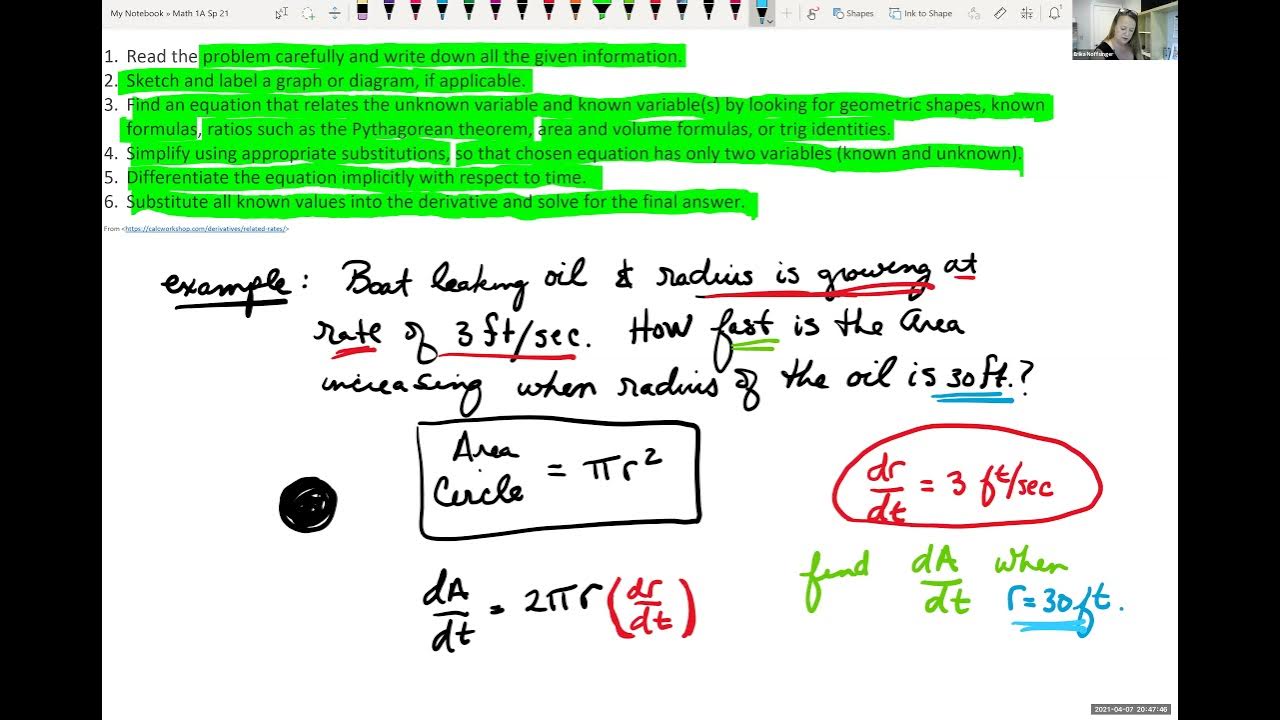 My Notebook » Math 1A Sp 21
Shapes
Ink to Shape
Erika Noffsinger
1. Read the problem carefully and write down all the given information.
2. Sketch and label a graph or diagram, if applicable.
3. Find an equation that relates the unknown variable and known variable(s) by looking for geometric shapes, known
formulas, ratios such as the Pythagorean theorem, area and volume formulas, or trig identities.
4. Simplify using appropriate substitutions, so that chosen equation has only two variables (known and unknown).
5. Differentiate the equation implicitly with respect to time.
6. Substitute all known values into the derivative and solve for the final answer.
From <https://calcworkshop.com/derivatives/related-rates/>
example: Boat leaking oil & radius is growing at
rate of 3 ft/sec. How fast is the area
increasing when radius of the oil is 30 ft.?
Area
Circle = πr²
dr/dt = 3 ft/sec
find dA/dt when
r = 30 ft.
dA/dt = 2πr (dr/dt)
2021-04-07 20:47:46